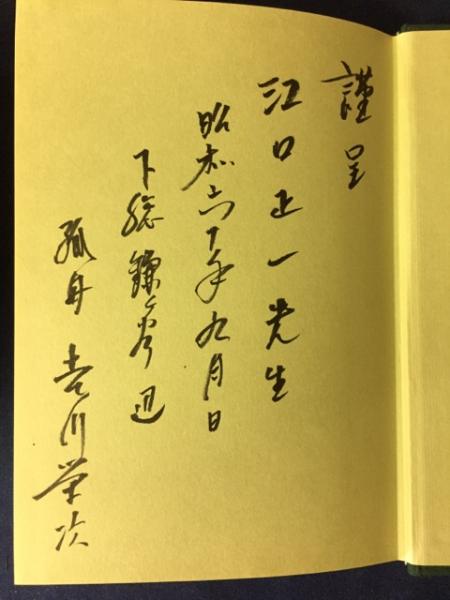 謹呈
江口正一先生
昭和六十年九月日
下総鎌ヶ谷辺
孤舟 吉川栄次